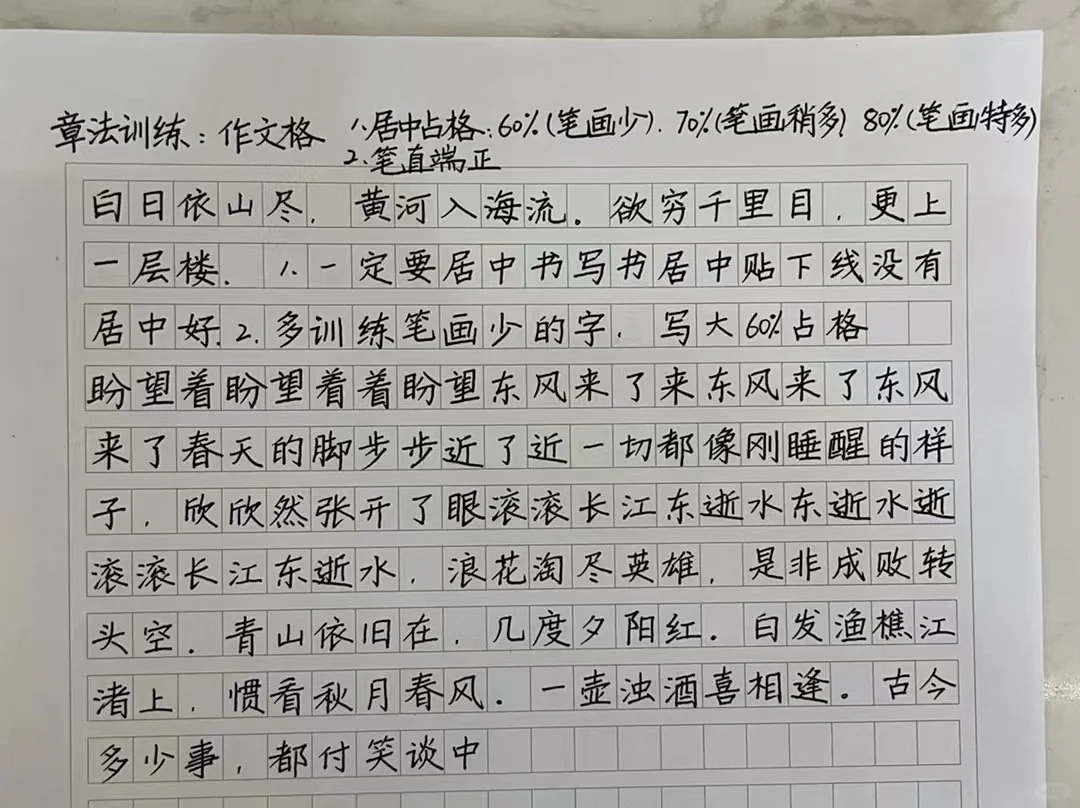 章法训练：作文格 1、居中占格：60%(笔画少)、70%(笔画稍多)、80%(笔画特多)
2、笔直端正
白日依山尽，黄河入海流。欲穷千里目，更上
一层楼。1、一定要居中书写书居中贴下线没有
居中好。2、多训练笔画少的字，写大60%占格
盼望着盼望着着盼望东风来了来东风来了东风
来了春天的脚步步近了近一切都像刚睡醒的样
子，欣欣然张开了眼滚滚长江东逝水东逝水逝
滚滚长江东逝水，浪花淘尽英雄，是非成败转
头空。青山依旧在，几度夕阳红。白发渔樵江
渚上，惯看秋月春风。一壶浊酒喜相逢。古今
多少事，都付笑谈中